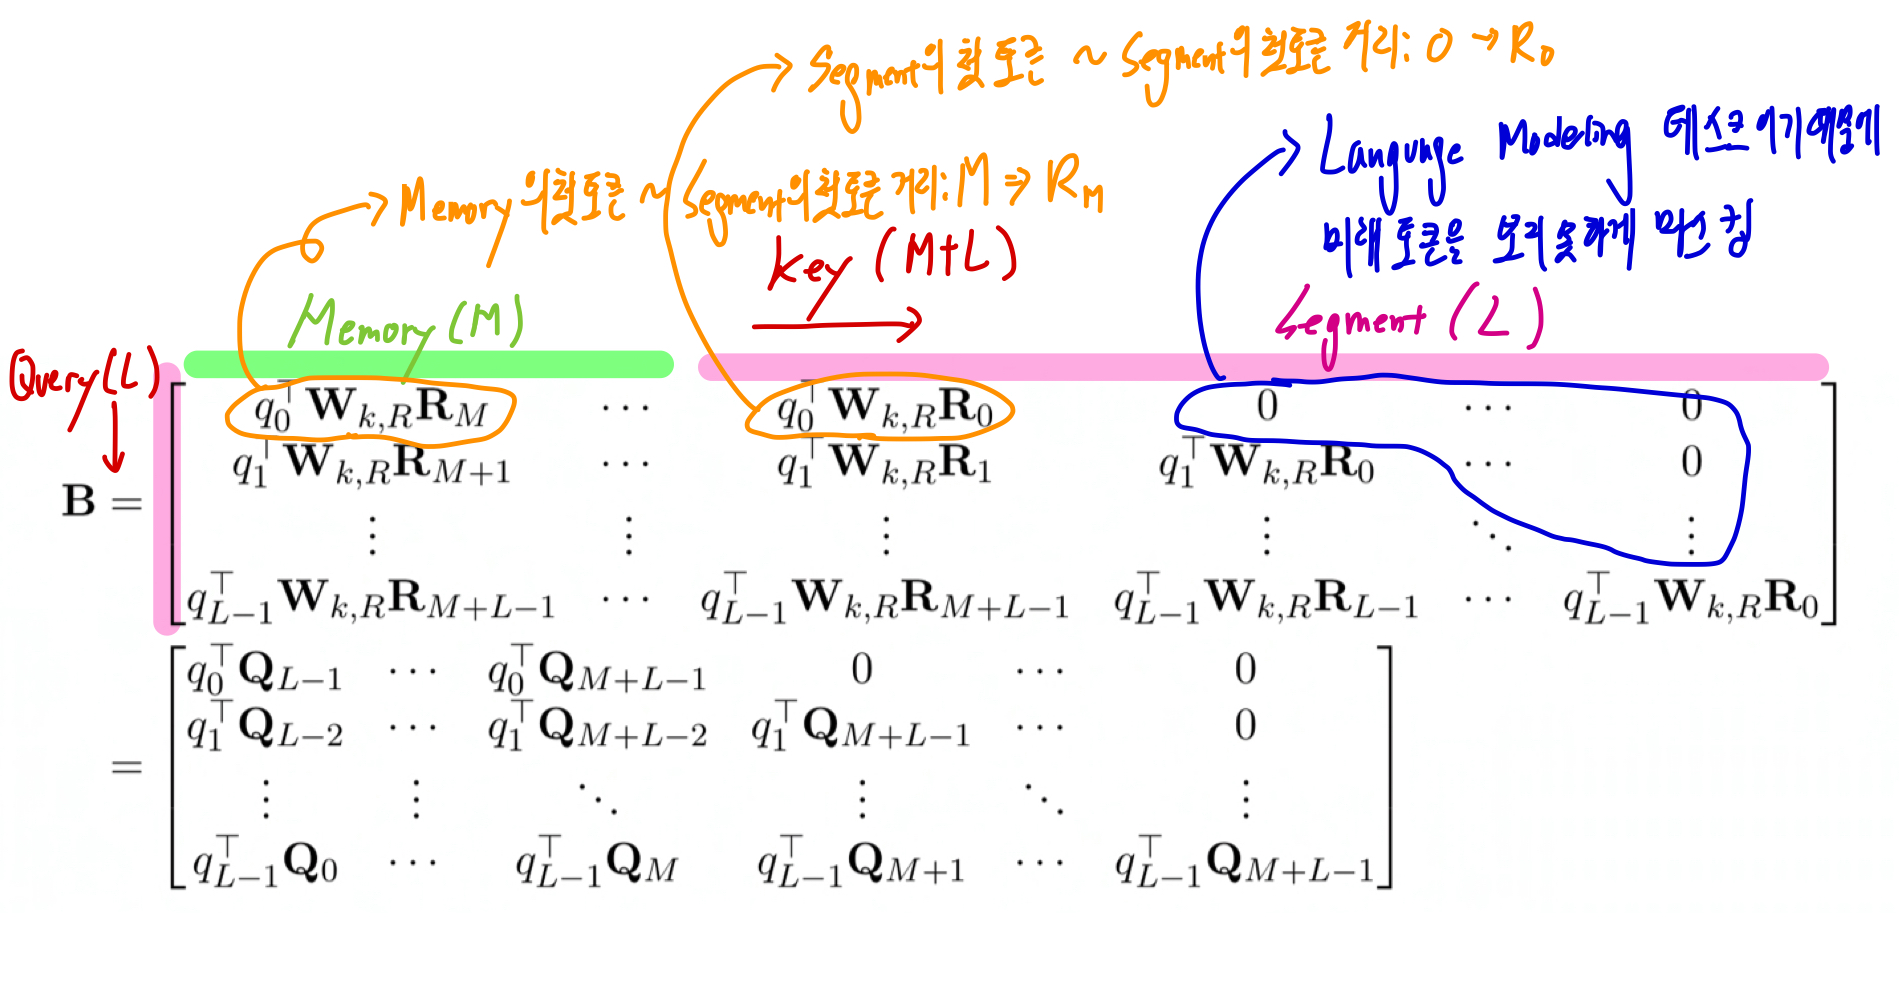 Segment의 첫토큰 ~ Segment의 첫토큰 거리: 0 → R₀
Language Modeling 테스크이기때문에
미래 토큰을 보지 못하게 마스킹
Memory의 첫토큰 ~ Segment의 첫토큰 거리: M ⇒ R_M
key (M+L)
Memory (M)
Segment (L)
Query (L)
B =
q_0^⊤ W_{k,R} R_M ⋯ q_0^⊤ W_{k,R} R_0 0 ⋯ 0
q_1^⊤ W_{k,R} R_{M+1} ⋯ q_1^⊤ W_{k,R} R_1 q_1^⊤ W_{k,R} R_0 ⋯ 0
⋮ ⋮ ⋮ ⋮ ⋱ ⋮
q_{L-1}^⊤ W_{k,R} R_{M+L-1} ⋯ q_{L-1}^⊤ W_{k,R} R_{M+L-1} q_{L-1}^⊤ W_{k,R} R_{L-1} ⋯ q_{L-1}^⊤ W_{k,R} R_0
=
q_0^⊤ Q_{L-1} ⋯ q_0^⊤ Q_{M+L-1} 0 ⋯ 0
q_1^⊤ Q_{L-2} ⋯ q_1^⊤ Q_{M+L-2} q_1^⊤ Q_{M+L-1} ⋯ 0
⋮ ⋮ ⋱ ⋮ ⋱ ⋮
q_{L-1}^⊤ Q_0 ⋯ q_{L-1}^⊤ Q_M q_{L-1}^⊤ Q_{M+1} ⋯ q_{L-1}^⊤ Q_{M+L-1}